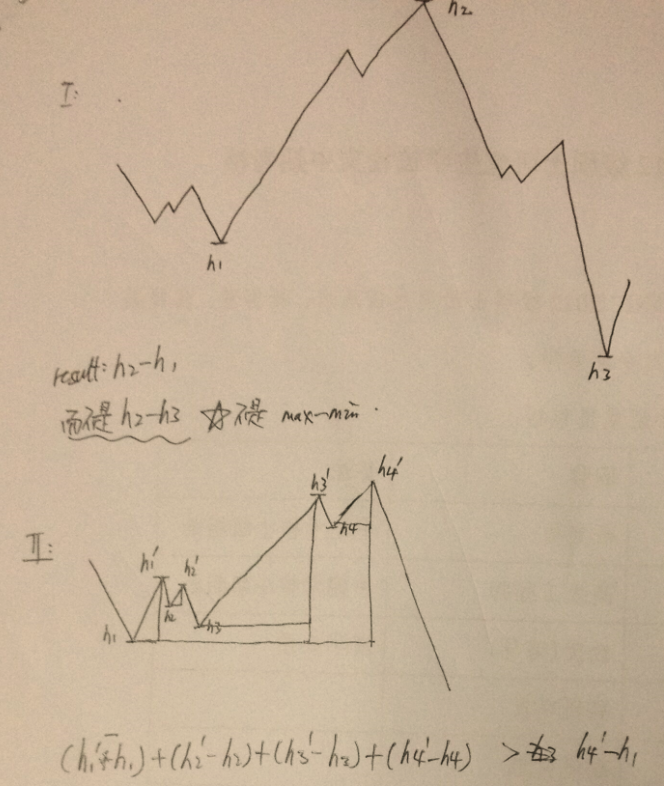 I:
h2
h1
h3
result: h2-h1
而不是 h2-h3 ☆不是 max-min.
II:
h3' h4'
h1' h2' h4
h2
h1 h3
(h1'-h1)+(h2'-h2)+(h3'-h3)+(h4'-h4) > h4'-h1